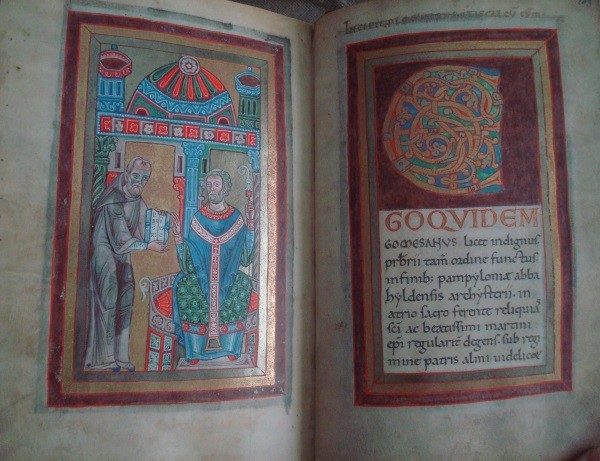 EGO QVIDEM
GOMESANVS. licet indignus
pr̄brii tam̄ ordine functus
infinib; pampyloniæ abba
hyldensis archysterii. in
atrio sacro ferente reliquiaˢ
sc̄i ac beatissimi martini
ep̄i regularit̄ degens. sub regi
mine patris almi videlicet